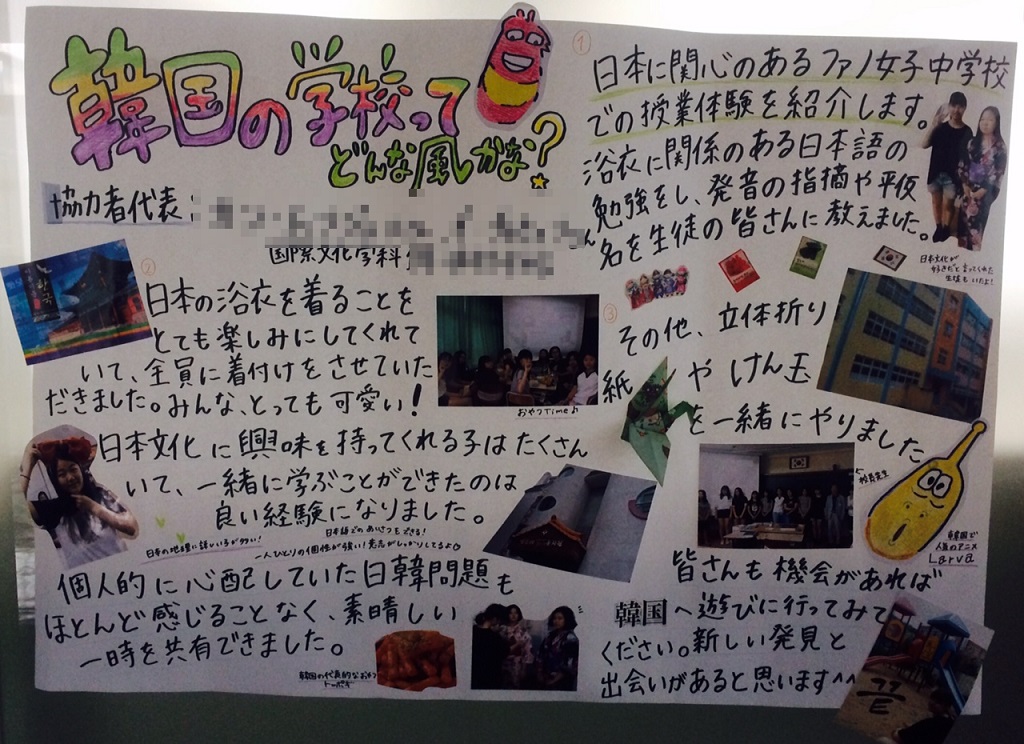 韓国の学校って
どんな風かな?
協力者代表:
国際文化学科
①
日本に関心のあるファノ女子中学校
での授業体験を紹介します。
浴衣に関係のある日本語の
勉強をし、発音の指摘や平仮
名を生徒の皆さんに教えました。
日本文化が
好きだと言ってくれた
生徒もいたよ!
②
日本の浴衣を着ることを
とても楽しみにしてくれて
いて、全員に着付けをさせていた
だきました。みんな、とっても可愛い!
おやつTime♪
日本文化に興味を持ってくれる子はたくさん
いて、一緒に学ぶことができたのは
良い経験になりました。
日本語でのあいさつもできる!
一人ひとりの個性が強い!意志がしっかりしてるよ
個人的に心配していた日韓問題も
ほとんど感じることなく、素晴しい
一時を共有できました。
韓国の代表的なおやつ
トッポギ
③
その他、立体折り
紙やけん玉
を一緒にやりました
校長先生
韓国で
人気のアニメ
Larva
皆さんも機会があれば
韓国へ遊びに行ってみて
ください。新しい発見と
出会いがあると思います^^
한국